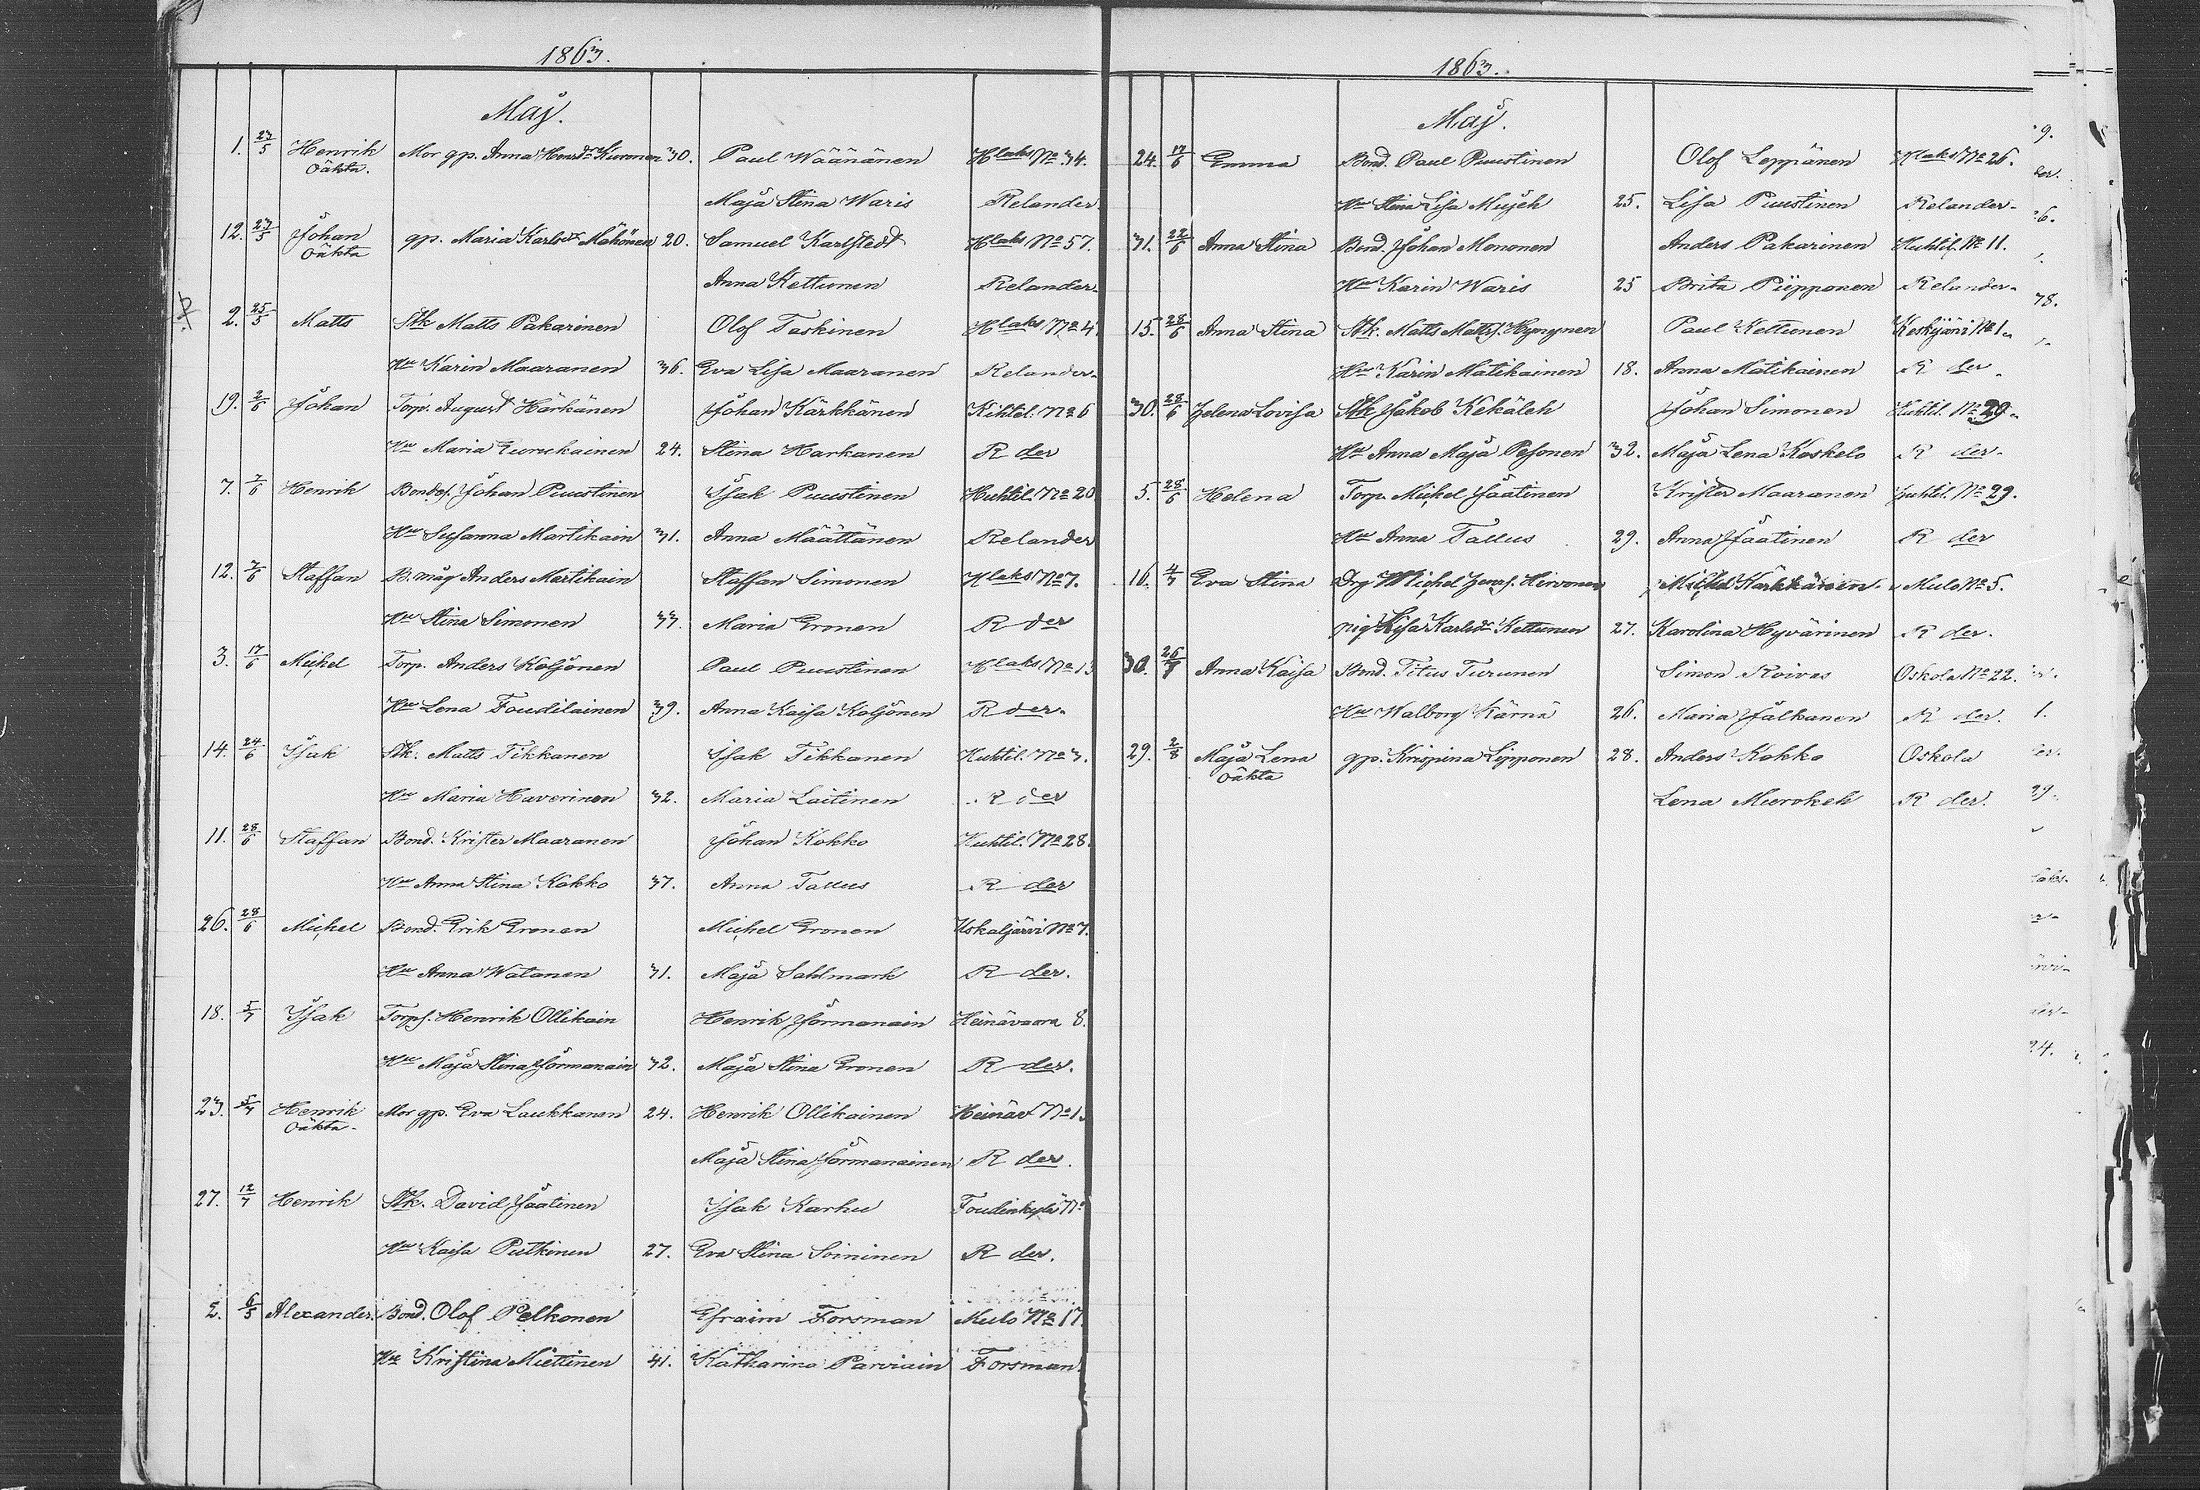 1863.
Maj.
1. 23/5 Henrik Mor gp. Anna Henrdr Kuronen 30. Paul Wäänänen Hlaks No 34.
oäkta. Maja Stina Waris Relander
12. 23/5 Johan gp. Maria Karlsdr Mähönen 20. Samuel Karlstedt Hlaks No 57.
oäkta Anna Kettunen Relander
2. 25/5 Matts Stk Matts Pakarinen Olof Taskinen Hlaks No 4
Hu Karin Maaranen 36. Eva Lisa Maaranen Relander
19. 2/6 Johan Torp. August Härkänen Johan Kärkkänen Kihtel. No 6
Hu Maria 24. Stina Harkanen R der
7. 7/6 Henrik Bondes. Johan Puustinen Isak Puustinen Huhtil. No 20
Hu Susanna Martikain 31. Anna Määttänen Relander
12. 7/6 Staffan B. måg Anders Martikain Staffan Simonen Hlaks No 7.
Hu Stina Simonen 33. Maria Eronen R der
3. 17/6 Michel Torp. Anders Koljonen Paul Puustinen Hlaks No 13
Hu Lena Toudilainen 39. Anna Kaisa Koljonen R der.
14. 24/6 Isak Stk. Matts Tikkanen Isak Tikkanen Huhtil. No 3.
Hu Maria Haverinen 32. Maria Laitinen R der
11. 28/6 Staffan Bond. Krister Maaranen Johan Kokko Huhtil. No 28.
Hu Anna Stina Kokko 37. Anna Tallus R der
26. 28/6 Michel Bond. Erik Eronen Michel Eronen Uskaljärvi No 7.
Hu Anna Watanen 31. Maja Sahlmark R der.
18. 5/7 Isak Torps. Henrik Ollikain Henrik Jormanain Heinävaara 8.
Hu Maja Stina Jormanain 32. Maja Stina Eronen R der.
23. 5/7 Henrik Mor gp. Eva Laukkanen 24. Henrik Ollikainen Heinäv No 1.
oäkta. Maja Stina Jormanainen R der.
27. 12/7 Henrik Stk. David Jaatinen Isak Karhu Toudinkylä No
Hu Kaisa Putkinen 27. Eva Stina Soininen R der.
2. 6/5 Alexander. Bond. Olof Pelkonen Efraim Forsman Mulo No 17.
Hu Kristina Miettinen 41. Katharina Parviain Forsman.
1863.
Maj.
24. 17/6 Emma Bond. Paul Puustinen Olof Leppänen Hlaks No 26.
Hu Stina Lisa Mujeh 25. Lisa Puustinen Relander
31. 22/6 Anna Stina Bond. Johan Mononen Anders Pakarinen Huhtil. No 11.
Hu Karin Waris 25 Brita Piipponen Relander
15. 28/6 Anna Stina Stk. Matts Matss. Hynynen Paul Kettunen Keskijärvi No 1.
Hu Karin Matikainen 18. Anna Matikainen R der
30. 28/6 Helena Lovisa Stk Jakob Kekäleh Johan Simonen Huhtil. No 29.
Hu Anna Maja Pesonen 32. Maja Lena Koskelo R der.
5. 28/6 Helena Torp. Michel Jaatinen Krister Maaranen Huhtil. No 29.
Hu Anna Tallus 29. Anna Jaatinen R der
16. 4/7 Eva Stina Drg Michel Hirvonen Michel Karkkänen Mulo No 5.
pig Kaisa Karlsdr Kettunen 27. Karolina Hyvärinen R der.
30. 26/7 Anna Kaisa Bond. Titus Turunen Simon Roivas Oskola No 22.
Hu Walborg Kärnä 26. Maria Jalkanen R der.
29. 2/8 Maja Lena gp. Krispina Lipponen 28. Anders Kokko Oskola
oäkta Lena Murokeh R der.